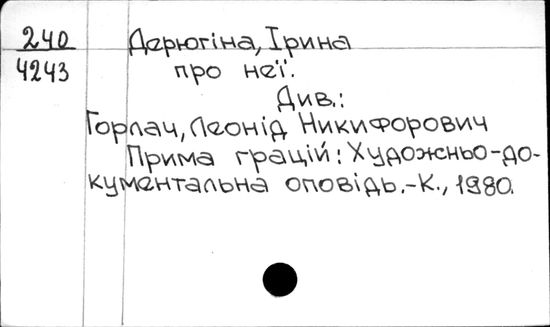 240 Дерюгіна, Ірина
4243 про неї.
Див.:
Горлач, Леонід Никифорович
Прима грацій: Художньо-до-
кументальна оповідь.-К., 1980.